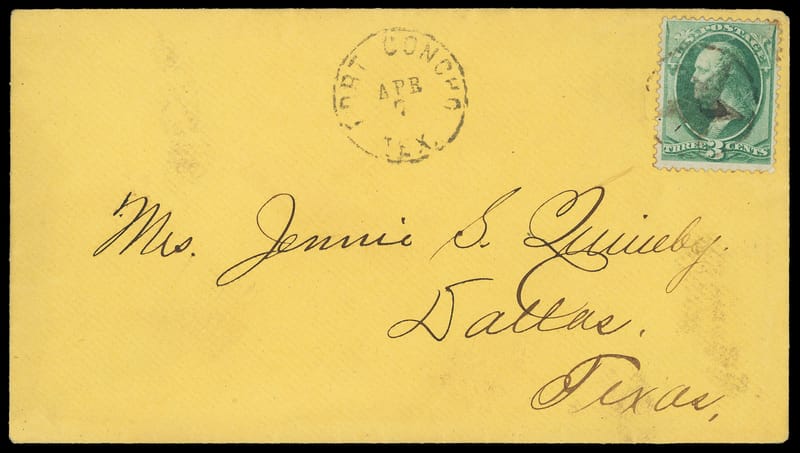 FORT CONCHO
APR
TEX.
U.S. POSTAGE
THREE 3 CENTS
Mrs. Jennie S. Quimby.
Dallas.
Texas,